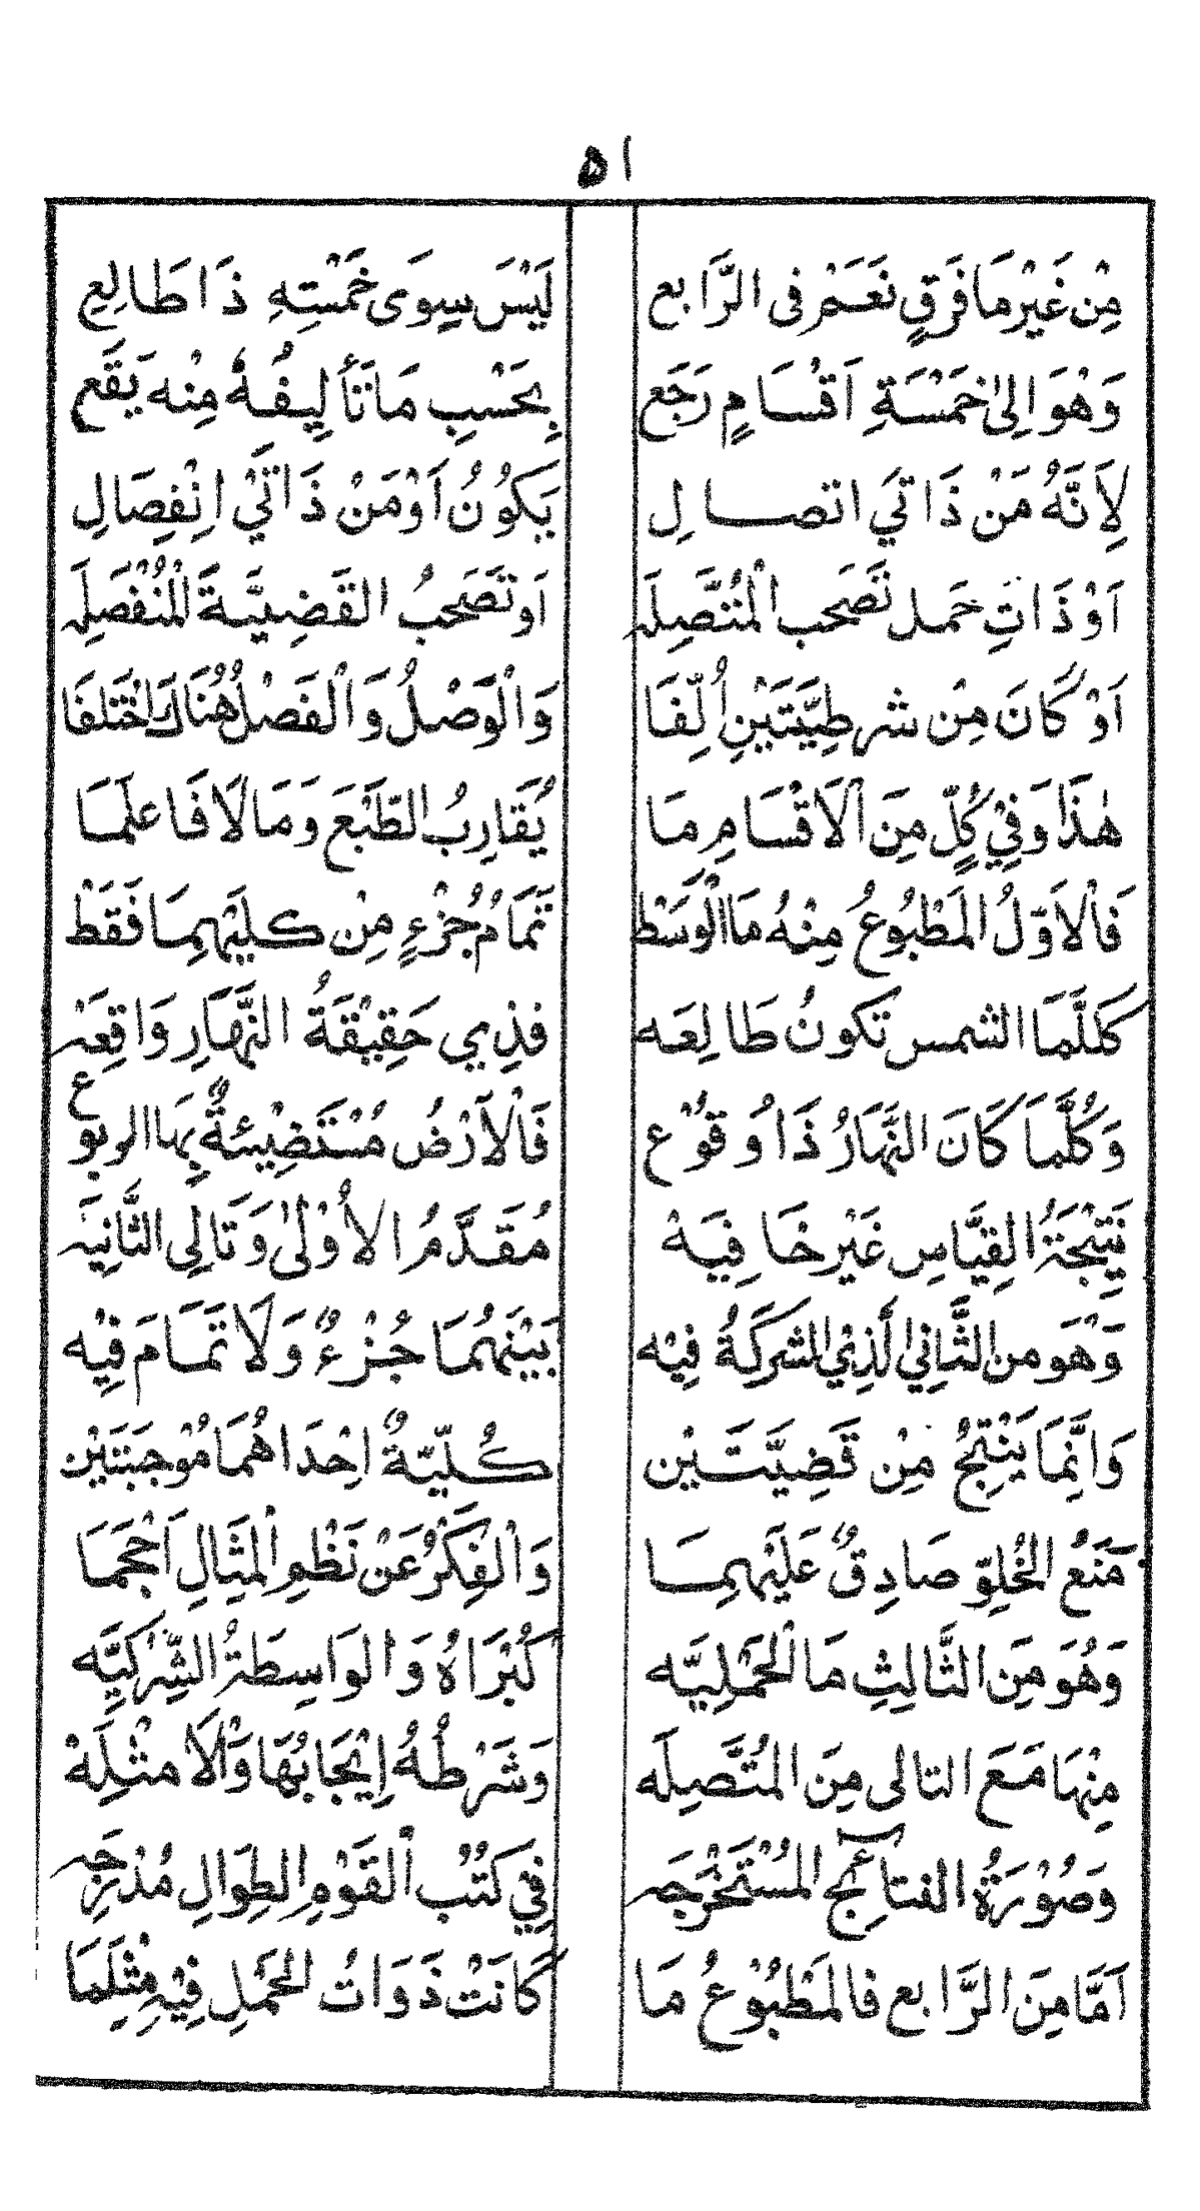 ٥١
مِنْ غَيْرِ مَا فَرَقٍ نَعَمْ فى الرَّابع لَيْسَ سِوَى خَمْسَتِهِ ذَا طَالِعِ
وَهْوَ اِلىٰ خَمْسَةِ اَقْسَامٍ رَجَع بِحَسْبِ مَا تَألِيفُهُ مِنْه يَقَع
لِاَنَّهُ مَنْ ذَاتَي اتصالِ يَكُونُ اَوْ مَنْ ذَاتَيْ انْفِصَالِ
اَوْ ذَاتِ حَمل تَصَحب الْمُتَّصِلَه اَو تَصَحبُ القَضِيَّةَ الْمُنْفَصِلَه
اَوْ كَانَ مِنْ شرطِيَّتَيْنِ اُلِّفَا وَالْوَصْلُ وَالْفَصْلُ هُنَاكَ اخْتَلفَا
هٰذَا وَفِيْ كُلٍّ مِنَ الْاَقْسَامِ مَا يُقَارِبُ الطَّبْعَ وَمَا لَا فَاعلَمَا
فَالْاَوَّلُ المَطْبُوعُ مِنْهُ مَا الْوَسَط تَمَامُ جُزْءٍ مِنْ كليَهِمَا فَقَطْ
كَلَلَّمَا الشمس تَكونُ طَالِعَه فذِي حَقِيْقَةُ النَّهَارِ وَاقِعَهْ
وَكُلَّمَا كَانَ النَّهَارُ ذَا وُقوُع فَالْاَرْضُ مُسْتَضِيْئةٌ بِهَا الربوع
نَتِيْجَةُ القِيَّاسِ غَيْر خَافِيَهْ مُقَدَّمُ الاُوْلىٰ وَتَالِى الثَّانِيَهْ
وَهْوَ من الثَّانِي الَّذِي الشركَةُ فِيْه بَيْنَهُمَا جُزْءٌ وَلَا تَمَامَ فِيْه
وَاِنَّمَا يَنْتِجُ مِنْ قَضِيَّتَيْن كُلّيَّةٌ اِحْدَاهُمَا مُوْجَبَتَيْن
مَنَعُ الخُلِوّ صَادِقٌ عَلَيْهِمَا وَالْفِكْرُ عَنْ نَظْمِ الْمِثَالِ اَحْجَمَا
وَهُوَ مِنَ الثَّالِثِ مَا الْحَمْلِيَّه كُبْرَاهُ وَالوَاسِطَةُ الشِّرْكِيَّه
مِنْهَا مَعَ التالى مِنَ المُتَّصِلَه وَشَرْطُهُ اِيْجَابُهَا وَالْاَمثْلِهْ
وَصُوْرَةُ الفتائِج المُسْتَخْرَجَه فِي كُتُب الْقَوْمِ الطِوَالِ مُدْرجَه
اَمَّا مِنَ الرَّابع فالمَطْبُوْعُ مَا كَانَتْ ذَوَاتُ الحَمْلِ فِيْهِ مِثْلَمَا